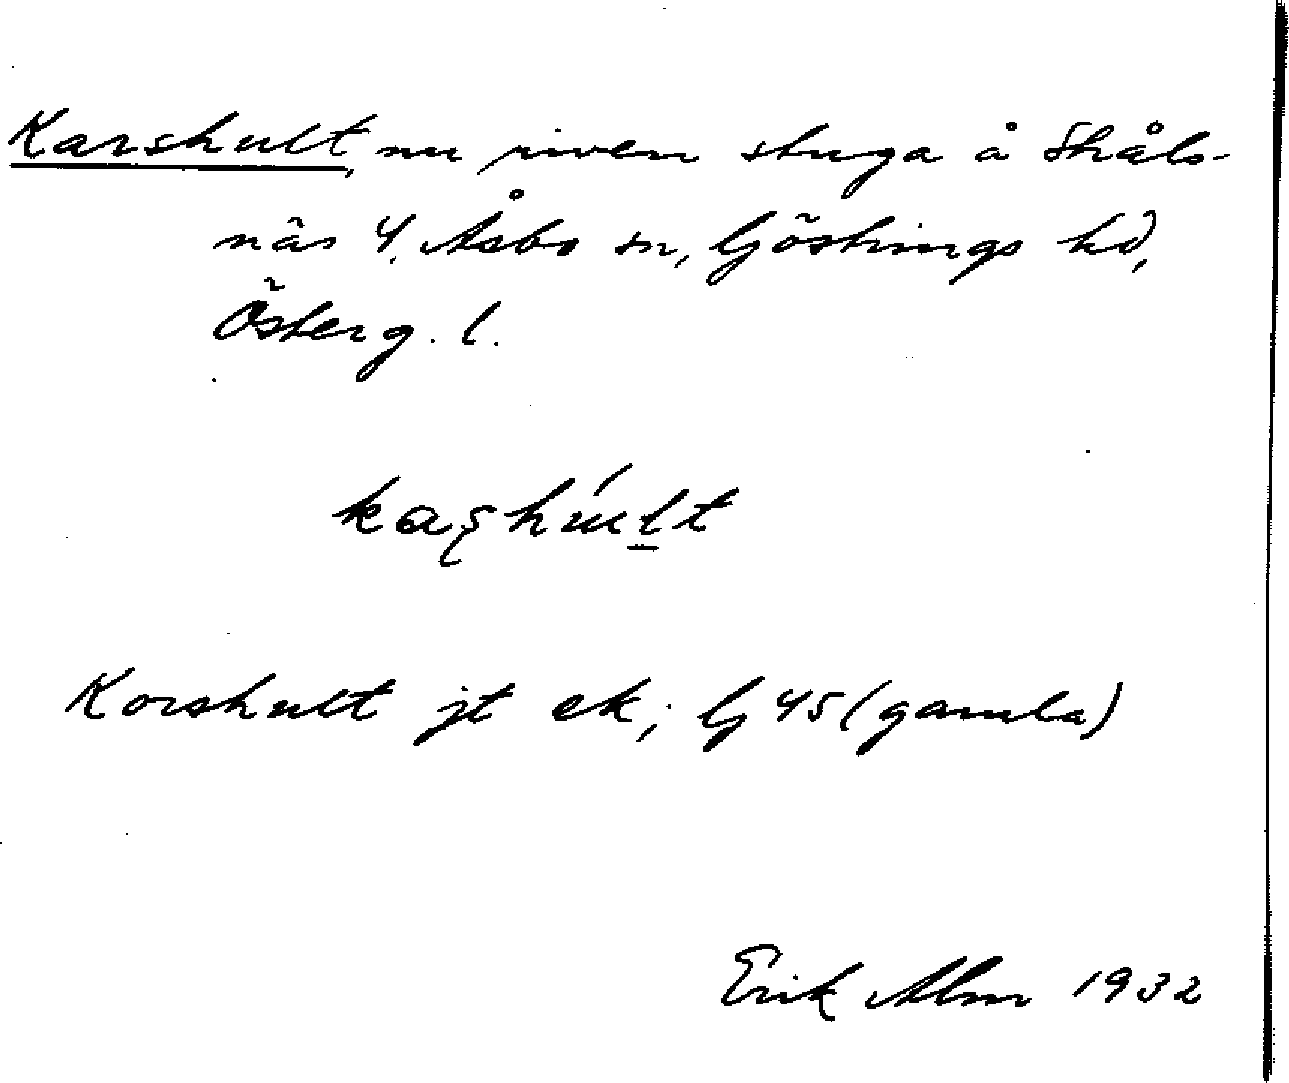 Karshult, nu riven stuga å Skåls-
näs 4, Åsbo sn, Göstrings hd,
Österg. l.
kaʂhúlt
Korshult jt ek; G 45 (gamla)
Erik Alm 1932